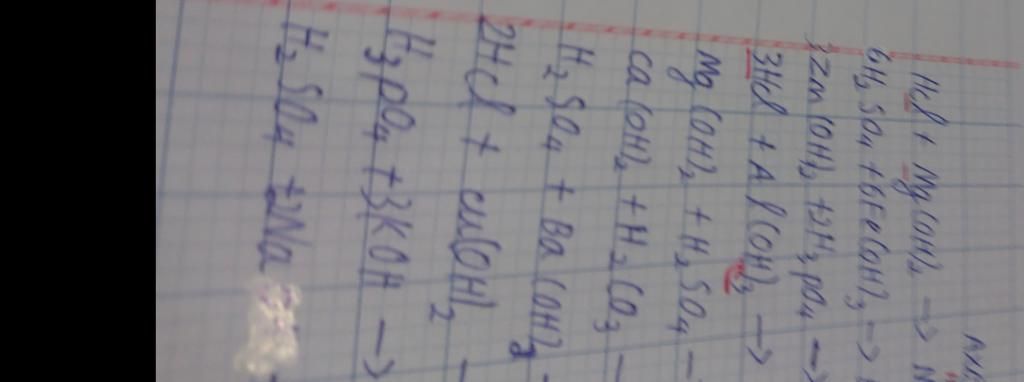 Hcl + Mg(OH)₂ → N
6H₂SO₄ + 6Fe(OH)₃ →
3Zn(OH)₂ + 2H₃pO₄ →
3Hcl + Al(OH)₃ →
Mg(OH)₂ + H₂SO₄ –
ca(OH)₂ + H₂CO₃ –
H₂SO₄ + Ba(OH)₂ –
2Hcl + cu(OH)₂ –
H₃pO₄ + 3KOH →
H₂SO₄ + 2Na